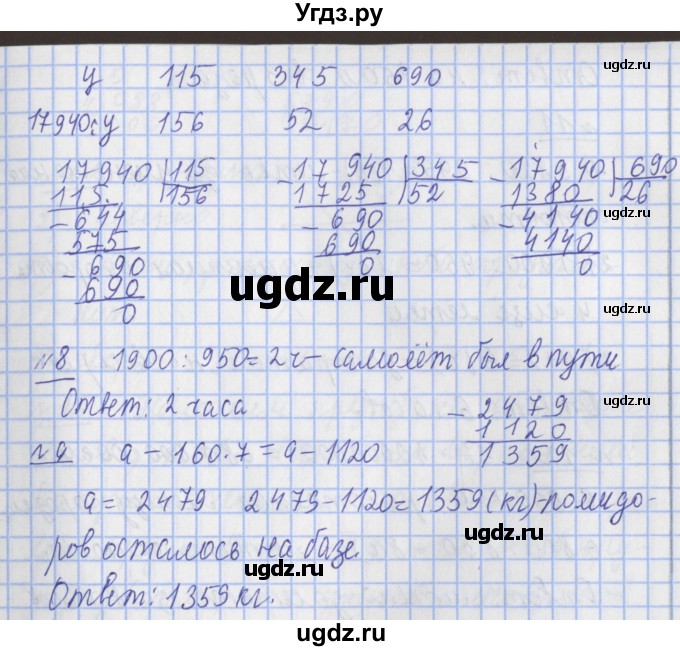 Угдз.ру
ugdz.ru
у 115 345 690
17940:у 156 52 26
17940 115 - 17 940 345 - 17940 690
115 156 1725 52 1380 26
- 644 - 690 - 4140
575 690 4140
- 690 0 0
690
0
ugdz.ru
ugdz.ru
№8 1900 : 950 = 2 ч – самолёт был в пути
ugdz.ru
Ответ: 2 часа
- 2479
1120
1359
№9 а – 160·7 = а – 1120
а = 2479 2479 – 1120 = 1359 (кг) – помидо-
ugdz.ru
ров осталось на базе.
ugdz.ru
Ответ: 1359 кг.
ugdz.ru
ugdz.ru